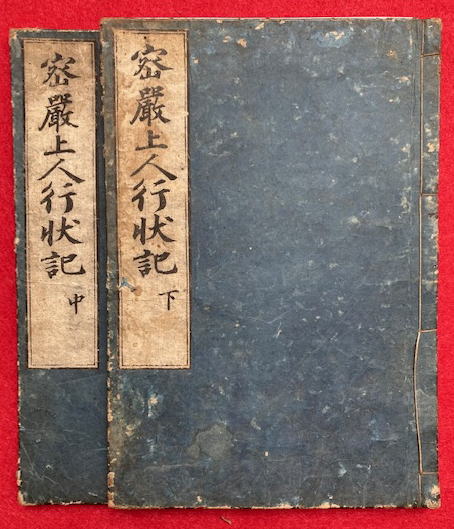 密嚴上人行状記 下
密嚴上人行状記 中